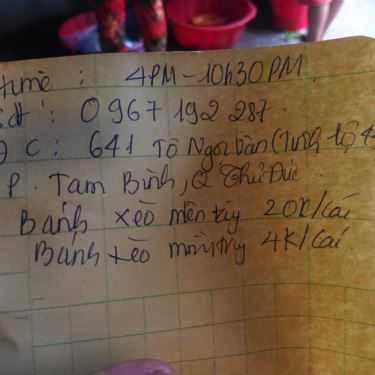 time : 4PM-10h30PM
sđt : 0967 192 287.
ĐC : 641 Tô Ngọc Vân (Tỉnh lộ 4
P. Tam Bình, Q Thủ Đức
Bánh xèo miền tây 20K/cái
Bánh xèo miền try 4K/cái